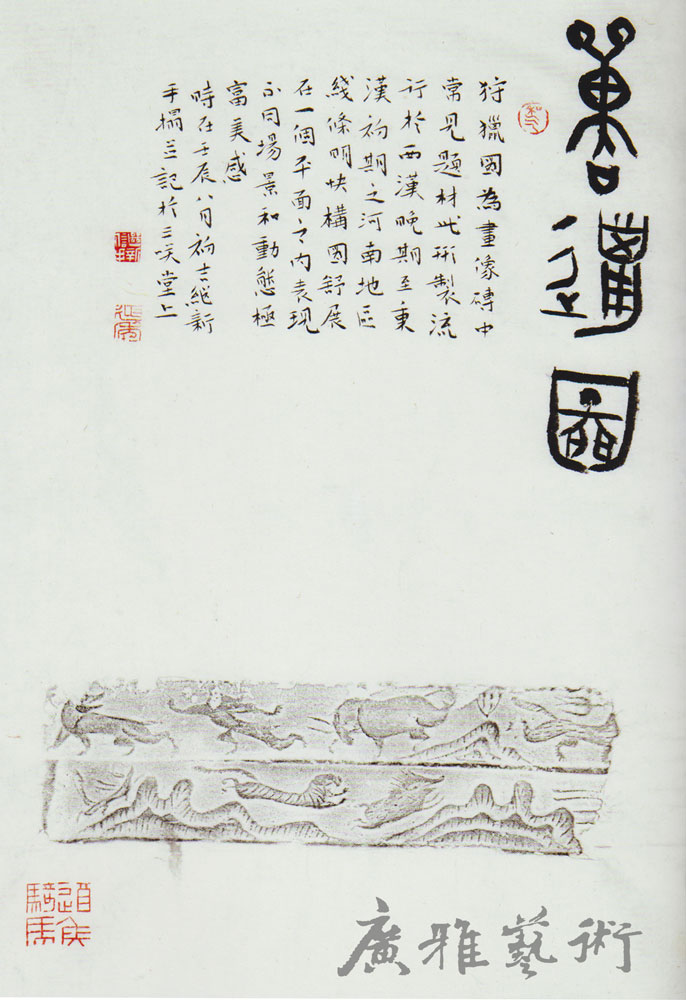 圖
狩獵圖為畫像磚中
常見題材此形製流
行於西漢晚期至東
漢初期之河南地區
綫條明快構圖舒展
在一個平面之內表現
不同場景和動態極
富美感
時在壬辰八月初吉繼新
手搨並記於三堂上
廣雅藝術